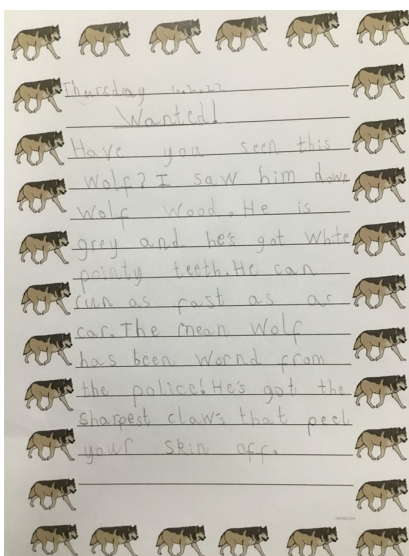 Thursday
Wanted!
Have you seen this
wolf? I saw him down
wolf wood. He is
grey and he's got white
pointy teeth. He can
run as fast as ac
car. The mean wolf
has been wornd from
the police! He's got the
sharpest claws that peel
your skin off.